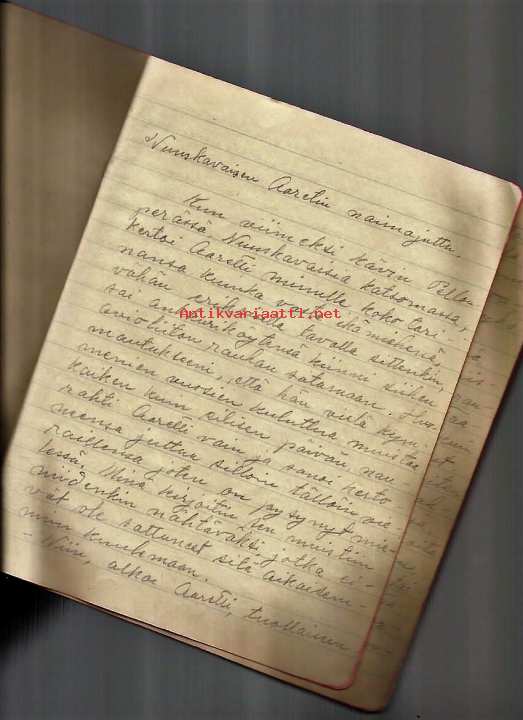 Nuuskavaisen Aaretin naimajuttu.
Kun viimeksi kävin Pellon
perässä Nuuskavassia katsomassa,
kertoi Aaretti minulle koko tari-
nansa kuinka vanhana
vähän tavalla sittenkin,
sai ankkuriköytensä kiinni siihen
avioliiton rauhan satamaan. Huo-
mautukseeni, että hän vielä kym-
menien vuosien kuluttua muistaa
kaiken kuin eilisen päivän, nau-
rahti Aaretti vain ja sanoi kerto-
neensa juttua silloin tällöin
joten on pysynyt mie-
lessä. Minä kirjoitin sen muistiin
niidenkin nähtäväksi, jotka ei-
vät ole sattuneet sitä aikaisem-
min kuulemaan.
- Niin, alkoi Aaretti, tuollainen
Antikvariaatti.net